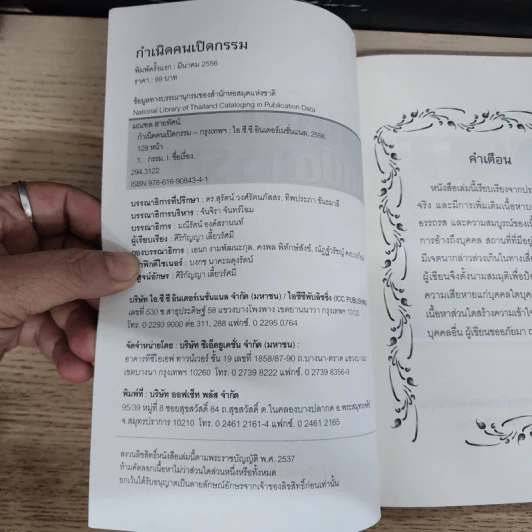 กำเนิดคนเปิดกรรม
พิมพ์ครั้งแรก : มีนาคม 2556
ราคา : 99 บาท
ข้อมูลทางบรรณานุกรมของสำนักหอสมุดแห่งชาติ
National Library of Thailand Cataloging in Publication Data
มณฑล สายทัศน์
กำเนิดคนเปิดกรรม -- กรุงเทพฯ : ไอ.ซี.ซี.อินเตอร์เนชั่นแนล, 2556.
128 หน้า.
1. กรรม. I. ชื่อเรื่อง.
294.3122
ISBN 978-616-90843-4-1
บรรณาธิการที่ปรึกษา : ดร.สุรัตน์ วงศ์รัตนภัสสร, ทิพประภา
บรรณาธิการบริหาร : จันจิรา จันทร์โฉม
บรรณาธิการ : มณีรัตน์ องค์สรานนท์
ผู้เรียบเรียง : ศิริกัญญา เลี้ยวรัศมี
กองบรรณาธิการ : เอนก งามพัฒนะกุล, คงพล พิทักษ์สังข์,
กราฟิกดีไซเนอร์ : บงกช นาคะผดุงรัตน์
พิสูจน์อักษร : ศิริกัญญา เลี้ยวรัศมี
บริษัท ไอ.ซี.ซี.อินเตอร์เนชั่นแนล จำกัด (มหาชน) / ไอซีซีพับลิชชิ่ง (ICC PUBLISHING
เลขที่ 530 ซ.สาธุประดิษฐ์ 58 แขวงบางโพงพาง เขตยานนาวา กรุงเทพฯ
โทร. 0 2293 9000 ต่อ 311, 288 แฟกซ์. 0 2295 0764
จัดจำหน่ายโดย : บริษัท ซีเอ็ดยูเคชั่น จำกัด (มหาชน) :
อาคารทีซีไอเอฟ ทาวน์เวอร์ ชั้น 19 เลขที่ 1858/87-90 ถ.บางนา-ตราด แขวงบางนา
เขตบางนา กรุงเทพฯ 10260 โทร. 0 2739 8222 แฟกซ์. 0 2739 8356-9
พิมพ์ที่ : บริษัท ออฟเซ็ท พลัส จำกัด
95/39 หมู่ที่ 8 ซอยสุขสวัสดิ์ 84 ถ.สุขสวัสดิ์ ต.ในคลองบางปลากด อ.พระสมุทรเจดีย์
จ.สมุทรปราการ 10210 โทร. 0 2461 2161-4 แฟกซ์. 0 2461 2165
สงวนลิขสิทธิ์หนังสือเล่มนี้ตามพระราชบัญญัติ พ.ศ. 2537
ห้ามคัดลอกเนื้อหาไม่ว่าส่วนใดส่วนหนึ่งหรือทั้งหมด
ยกเว้นได้รับอนุญาตเป็นลายลักษณ์อักษรจากเจ้าของลิขสิทธิ์ก่อนเท่านั้น
คำเตือน
หนังสือเล่มนี้เรียบเรียงจากประ
จริง และมีการเพิ่มเติมเนื้อหาบาง
อรรถรส และความสมบูรณ์ของเนื้
การอ้างถึงบุคคล สถานที่ที่มีอยู่
มีเจตนากล่าวล่วงเกินในทางเสื่อ
ผู้เขียนจึงตั้งนามสมมุติเพื่อป้อ
ความเสียหายแก่บุคคลใดบุคค
เนื้อหาส่วนใดสร้างความเข้าใจ
บุคคลอื่น ผู้เขียนขออภัยมา ณ